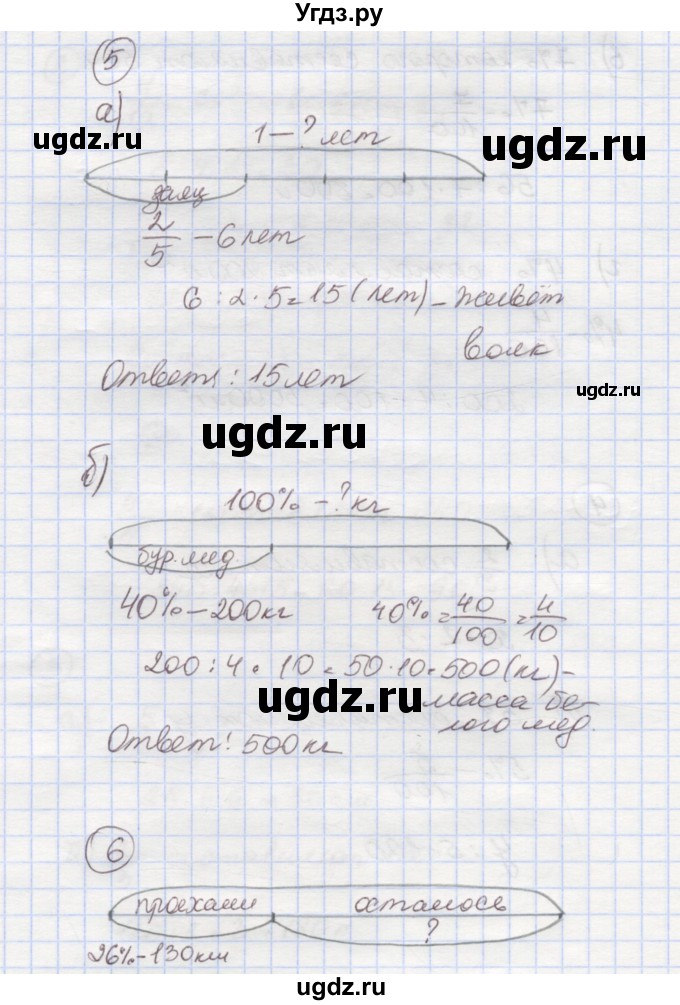 gdz.ru
5
а)
ugdz.ru
ugdz.ru
1 – ? лет
заяц
2/5 – 6 лет
6 : 2 · 5 = 15 (лет) – живёт
волк
Ответ: 15 лет
ugdz.ru
ugdz.ru
б)
100% – ? кг
бур. мед
40% – 200 кг 40% = 40/100 = 4/10
200 : 4 · 10 = 50 · 10 = 500 (кг) –
масса бе-
лого мед.
ugdz.ru
Ответ: 500 кг
ugdz.ru
ugdz.ru
6
проехали осталось
?
26% – 130 км
ugdz.ru